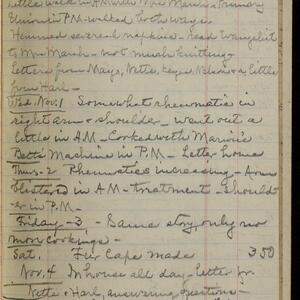 Little walk in A.M. with Mrs Marsh - Primary
Union in P.M. - walked both ways.
Hemmed several napkins. Read Evangelist
to Mrs Marsh - not much knitting.
Letters from Mays, Nette, Keyes, Nelson & a little
from Harl -
Wed. Nov. 1 Somewhat rheumatic in
right arm & shoulder - went out a
little in A.M - Corked with Marvie
Betts' Machine in P.M. - Letter home
Thurs - 2 Rheumatics increasing - Arm
blistered in A.M - treatment - Should-
er in P.M.
Friday - 3 - Same story only no
more cookings -
Sat. Fur Cape made 350
Nov. 4 In house all day - Letter for
Nette & Harl, answering questions -